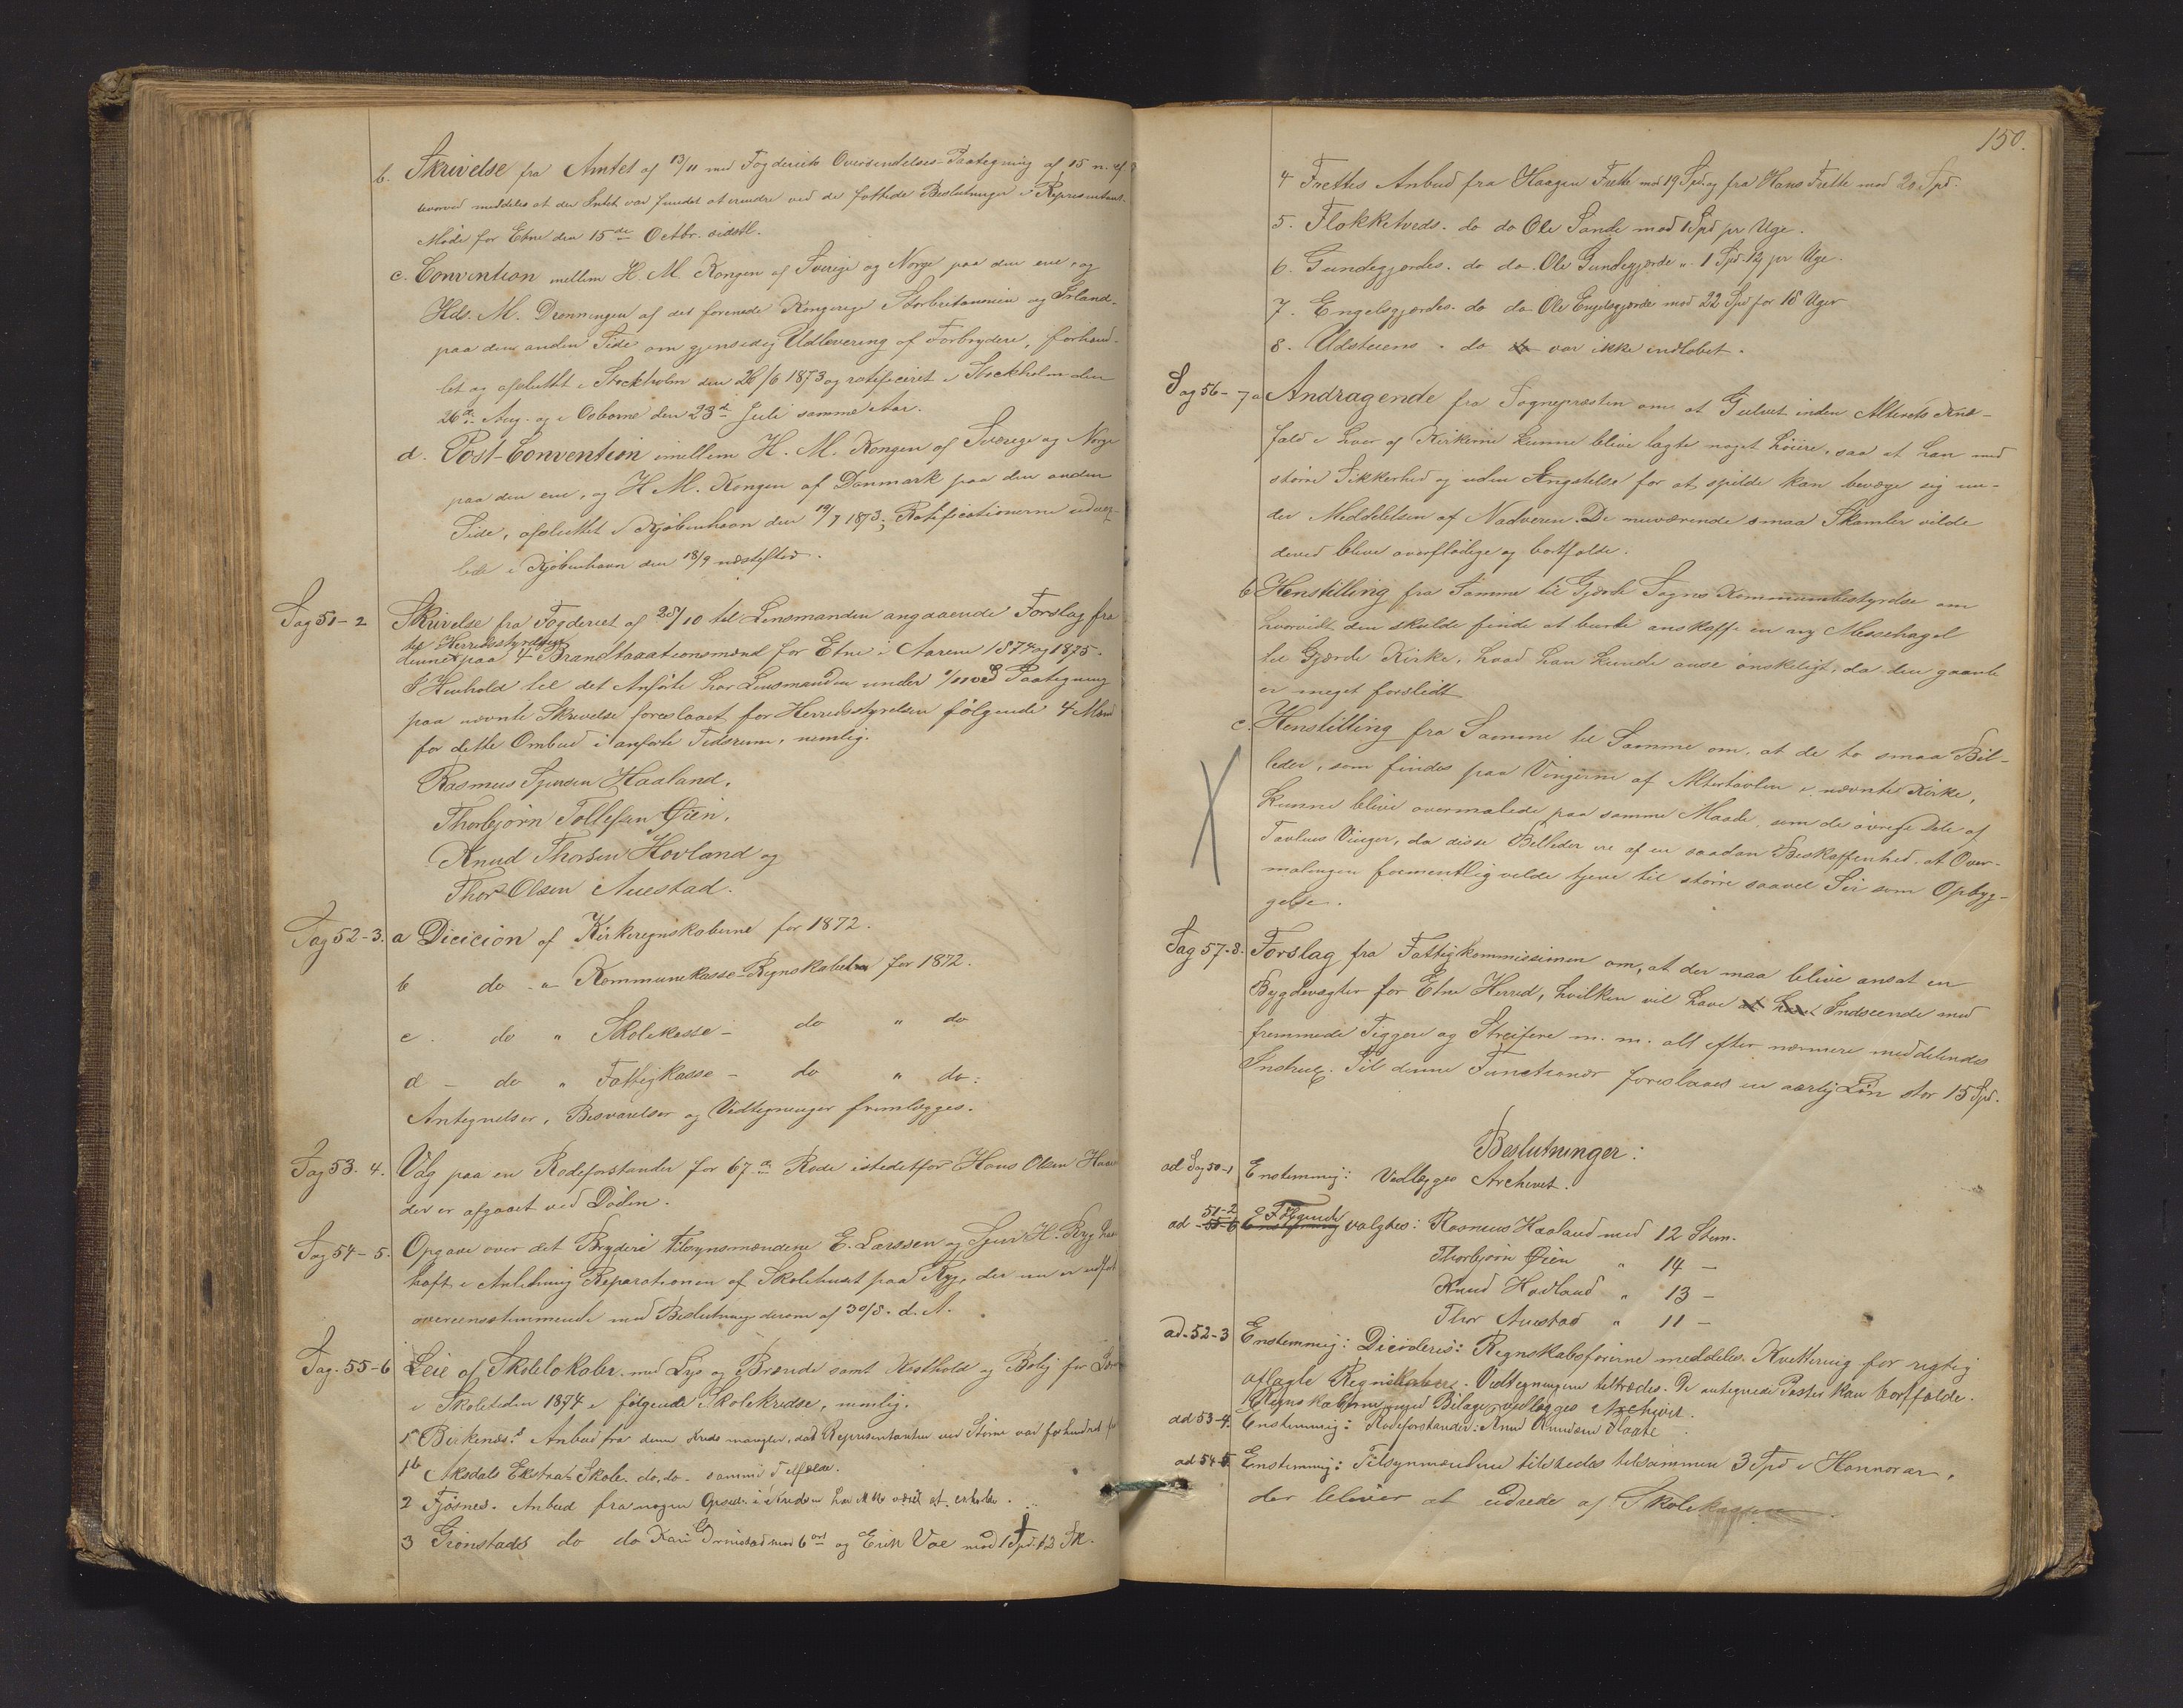 b. Skrivelse fra Amtet af 13/11 med Fogderiets Oversendelses-Paategning af 15 n. af
hvorved meddeles at der Intet var fundet at erindre ved de fattede Beslutninger i Repræsentant-
Møde for Etne den 15de Octbr. sidstl.
c. Convention mellem H. M. Kongen af Sverige og Norge paa den ene, og
Hds. M. Dronningen af det forenede Kongerige Storbritannien og Irland.
paa den anden Side om gjensidig Udlevering af Forbrydere, forhand-
let og afsluttet i Stockholm den 26/6 1873 og ratificeret i Stockholm den
26de Aug. og i Osborne den 23de Juli samme Aar.
d. Post-Convention imellem H. M. Kongen af Sverige og Norge
paa den ene, og H M. Kongen af Danmark paa den anden
Side, afsluttet i Kjøbenhavn den 19/7 1873; Ratificationerne udvex-
lede i Kjøbenhavn den 18/9 næstefter.
Sag 51-2 Skrivelse fra Fogderiet af 28/10 til Lensmanden angaaende Forslag fra
til Herredsstyrelsen
denne paa 4 Brandtaxationsmænd for Etne i Aarene 1874 og 1875.
I Henhold til det Anførte har Lensmanden under 1/11 ved Paategning
paa nævnte Skrivelse foreslaaet for Herredsstyrelsen følgende 4 Mænd
for dette Ombud i anførte Tidsrum, nemlig.
Rasmus Sjursen Haaland,
Thorbjørn Tollefsen Øien,
Knud Thorsen Hovland og
Thor Olsen Auestad.
Sag 52-3. a Dicicion af Kirkeregnskaberne for 1872.
b do - a - Kommunekasse-Regnskabet for 1872.
c. do " Skolekasse - do " do
d - do " Fattigkasse - do " do:
Antegnelser, Besvarelser og Vedtegninger fremlægges.
Sag 53. 4. Valg paa en Rodeforstander for 67de Rode istedetfor Hans Olsen
der er afgaaet ved Døden.
Sag 54-5. Opgave over det Bryderi Tilsynsmændene E. Larssen og Sjur H. Ryg har
haft i Anledning Reparationen af Skolehuset paa Ryg, der nu er udført
overensstemmende med Beslutning derom af 30/8. d. A.
Sag. 55-6 Leie af Skolelokaler med Lys og Brænde samt Kosthold og Bolig for
i Skoletiden 1874 i følgende Skolekredse, nemlig.
1a Birkenæs. Anbud fra denne Kreds mangler, da Repræsentanten ved Stevne var forhindret
1b Aksdals Ekstra-Skole. do, do. samme Tilfælde.
2 Fjøsnes. Anbud fra nogen Opsid. i Kredsen har ikke været at erholde.
3 Grønstads do do Kari Grønstad mod 6 ort og Erik Voe mod 1 Spd. 12 Sk.
150.
4 Frettes Anbud fra Haagen Frette mod 19 Spd. og fra Hans Frette mod 20 Spd.
5. Flokketveds. do do Ole Sande mod 1 Spd pr Uge.
6. Gundegjerdes. do do. Ole Gundegjerde " 1 Spd. 12 pr Uge.
7. Engelsgjerdes. do do Ole Engelsgjerde mod 22 Spd for 18 Uger
8. Udsteiens. do do var ikke indløbet.
Sag 56-7 a Andragende fra Sognepræsten om at Gulvet inden Alterets Knæ-
fald i hver af Kirkerne kunne blive lagte noget høiere, saa at han med
større Sikkerhed og uden Ængstelse for at spilde kan bevæge sig un-
der Meddelelsen af Nadveren. De nuværende smaa Skamler vilde
derved blive overflødige og bortfalde.
b Henstilling fra Samme til Gjerde Sogns Kommunebestyrelse om
hvorvidt den skulde finde at burde anskaffe en ny Messehagel
til Gjerde Kirke, hvad han kunde anse ønskeligt, da den gamle
er meget forslidt
c. Henstilling fra Samme til Samme om, at de to smaa Bil-
leder, som findes paa Vingerne af Altertavlen i nævnte Kirke,
kunne blive overmalede paa samme Maade, som de øvrige Dele af
Tavlens Vinger, da disse Billeder ere af en saadan Beskaffenhed at Over-
malingen formentlig vilde tjene til større saavel Sir som Opbyg-
gelse.
Sag 57-8. Forslag fra Fattigkommissionen om, at der maa blive ansat en
Bygdevægter for Etne Herred, hvilken vil have at have Indseende med
fremmede Tiggere og Streifere m. m. alt efter nærmere meddelendes
Instrux. Til denne Functionær foreslaaes en aarlig Løn stor 15 Spd.
Beslutninger:
ad Sag 50-1 Enstemmig: Vedlægges Archivet.
ad 51-2 Følgende valgtes: Rasmus Haaland med 12 Stem.
Thorbjørn Øien " 14 -
Knud Hovland " 13 -
Thor Auestad " 11 -
ad. 52-3 Enstemmig: Dicideres: Regnskabsførerne meddeles Kvittering for rigtig
aflagte Regnskaber. Vedtegningerne tiltrædes. De antegnede Poster kan bortfalde.
Regnskaberne med Bilage vedlægges Archivet.
ad 53-4. Enstemmig: Rodeforstander: Knud Amundsen Flaate
ad 54-5 Enstemmig: Tilsynsmændene tilstædes tilsammen 3 Spd i Honnorar,
der bliver at udrede af Skolekassen.